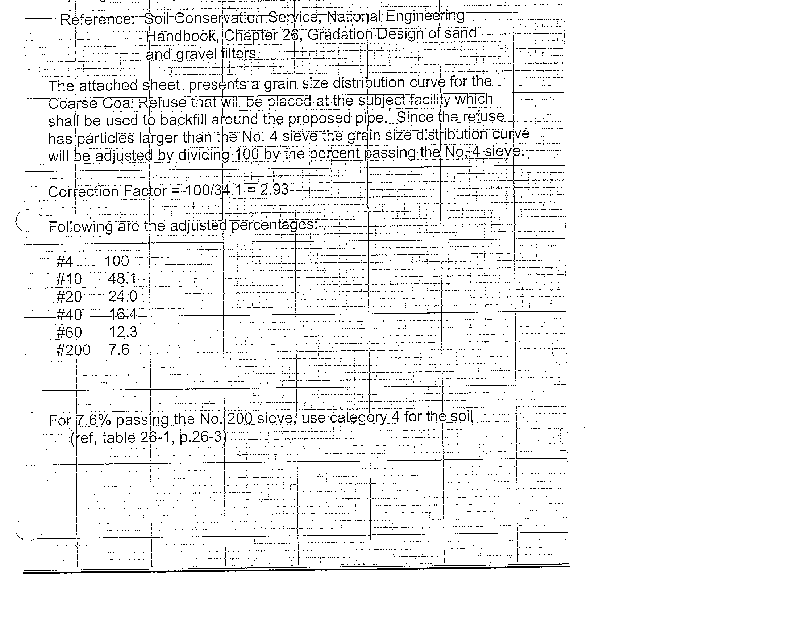 Reference: Soil Conservation Service, National Engineering
Handbook, Chapter 26, Gradation Design of sand
and gravel filters
The attached sheet presents a grain size distribution curve for the
Coarse Coal Refuse that will be placed at the subject facility which
shall be used to backfill around the proposed pipe. Since the refuse
has particles larger than the No. 4 sieve the grain size distribution curve
will be adjusted by dividing 100 by the percent passing the No. 4 sieve.
Correction Factor = 100/34.1 = 2.93
Following are the adjusted percentages:
#4 100
#10 48.1
#20 24.0
#40 16.4
#60 12.3
#200 7.6
For 7.6% passing the No. 200 sieve, use category 4 for the soil
(ref, table 26-1, p.26-3)